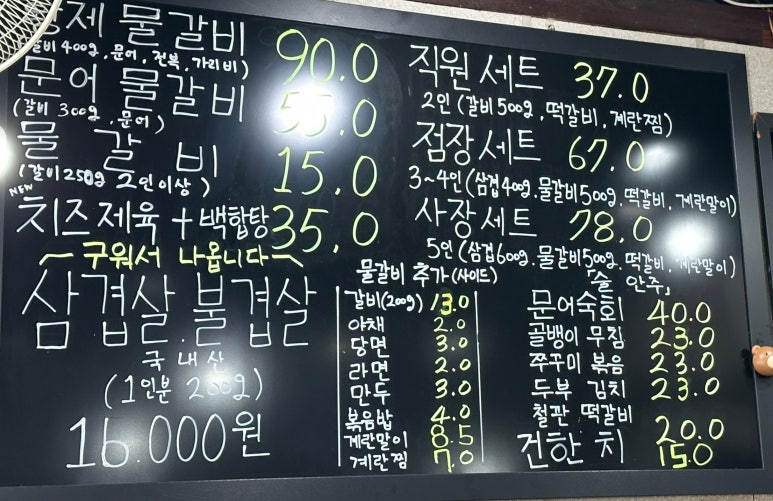 제 물갈비 90.0
갈비 400g, 문어, 전복, 가리비)
문어 물갈비 55.0
(갈비 300g, 문어)
물 갈 비 15.0
(갈비 250g 2인이상)
NEW
치즈제육 + 백합탕 35.0
구워서 나옵니다
삼겹살.불겹살
국내산
(1인분 200g)
16.000원
직원 세트 37.0
2인 (갈비 500g, 떡갈비, 계란찜)
점장세트 67.0
3~4인 (삼겹 400g, 물갈비 500g, 떡갈비, 계란말이)
사장세트 78.0
5인 (삼겹 600g, 물갈비 500g, 떡갈비, 계란말이)
물갈비 추가 (사이드)
갈비(200g) 13.0
야채 2.0
당면 3.0
라면 2.0
만두 3.0
볶음밥 4.0
계란말이 8.5
계란찜 7.0
「술 안주」
문어숙회 40.0
골뱅이 무침 23.0
쭈꾸미 볶음 23.0
두부 김치 23.0
철판 떡갈비 20.0
건한치 15.0